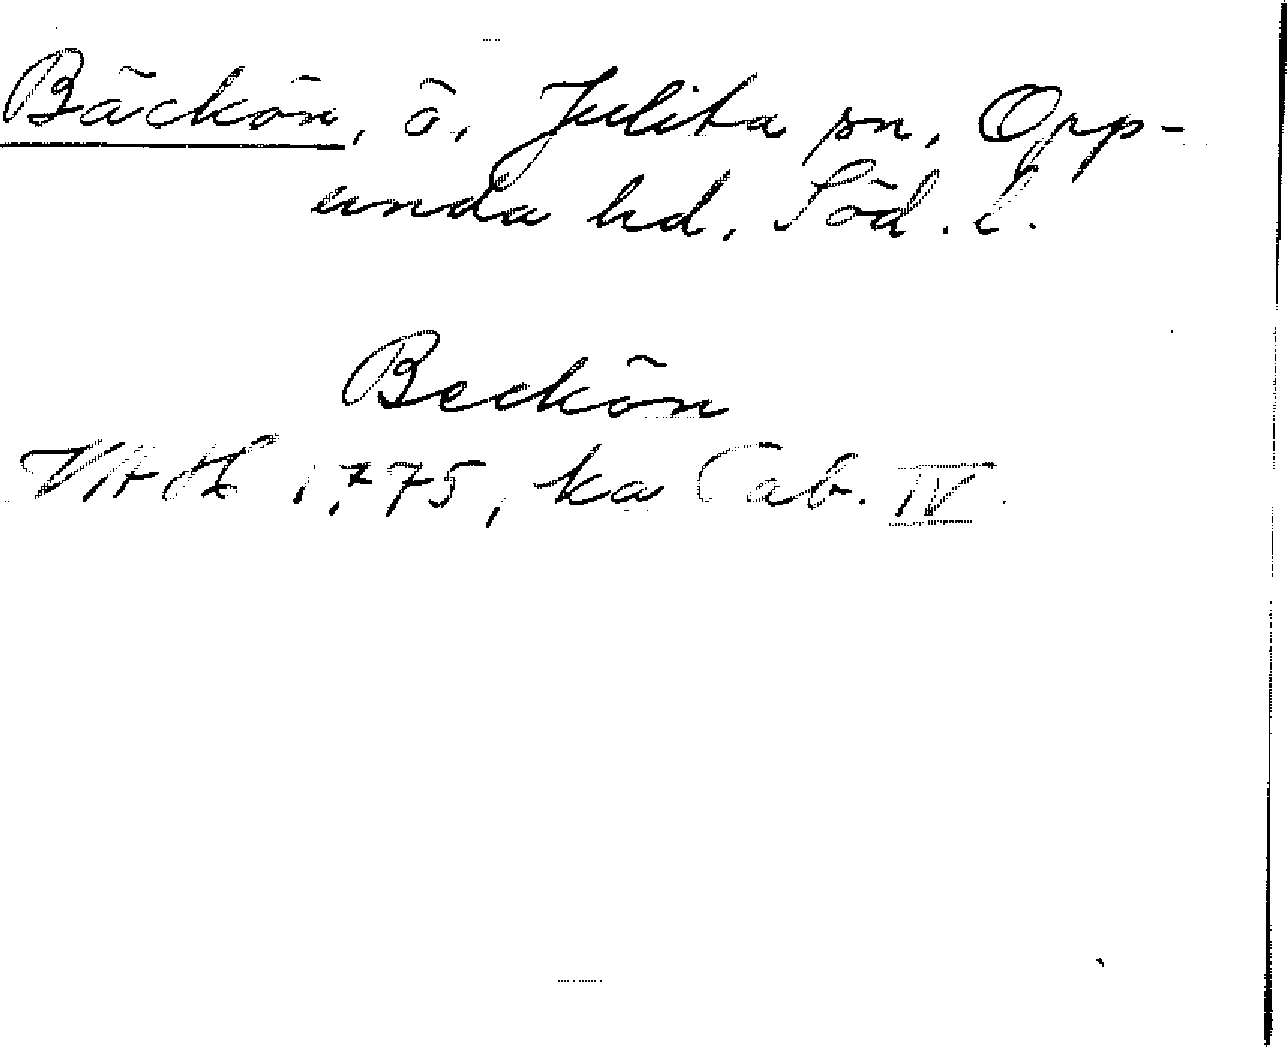 Bäckön, ö, Julita sn, Opp-
unda hd, Söd. l.
Beckön
VAH 1775, ka Tab. IV